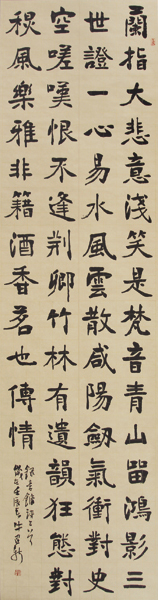 兰指大悲意淺笑是梵音青山畱鴻影三
世證一心易水風雲散咸陽劔氣衝對史
空嗟嘆恨不逢荆卿竹林有遺韻狂態對
秋風樂雅非籍酒香茗也傳情